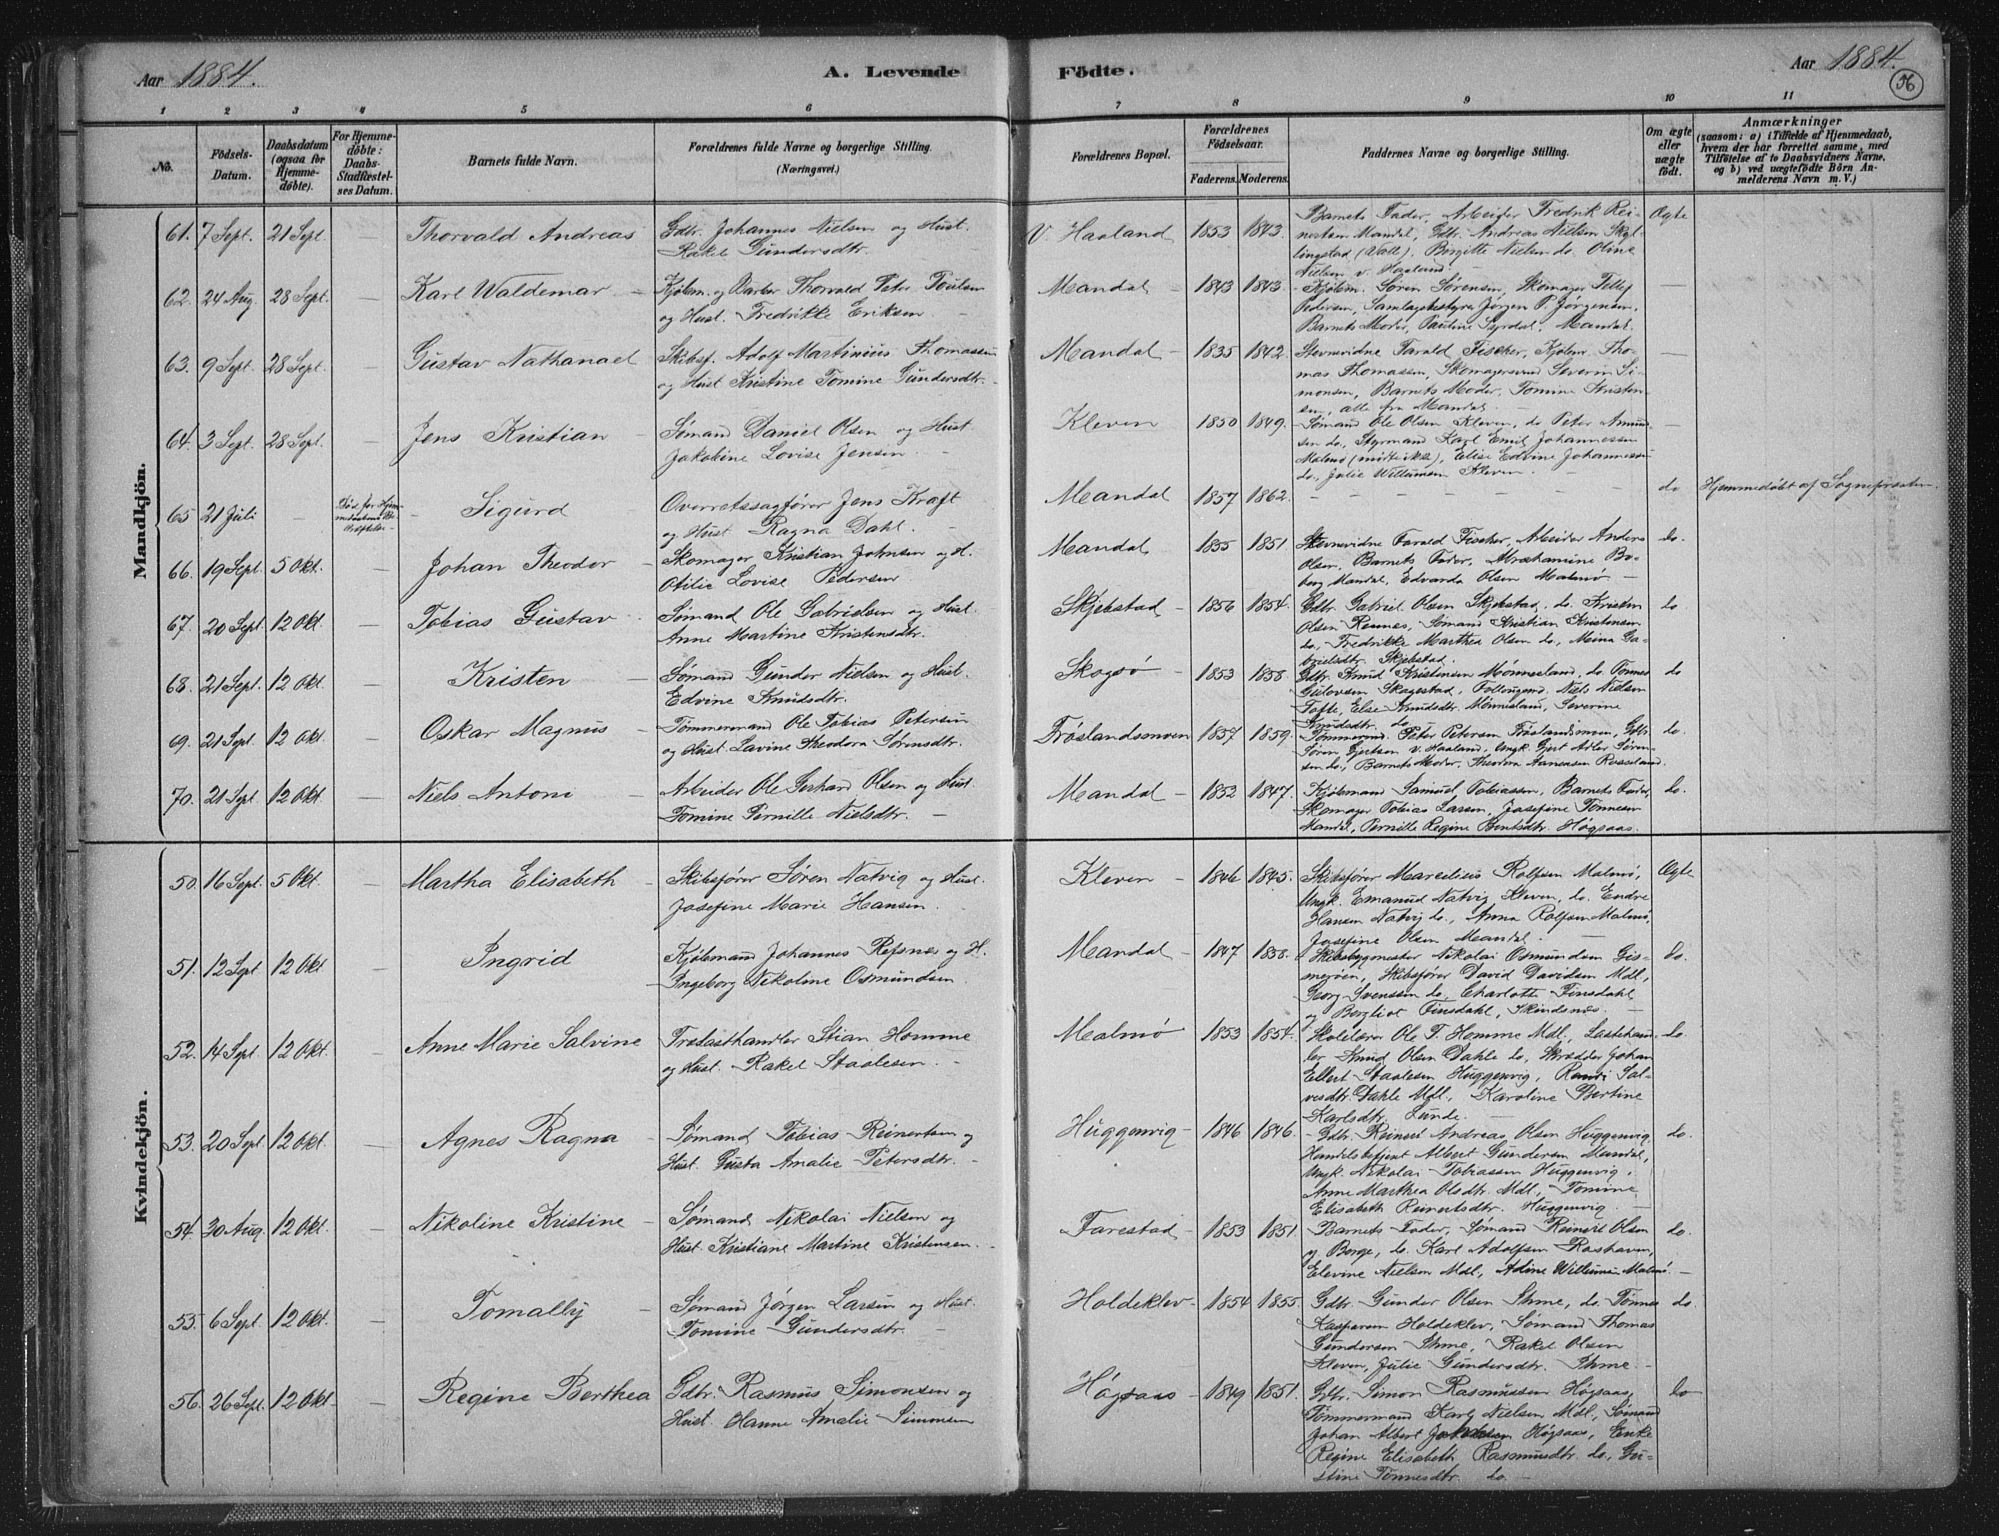 Aar 1884.
A. Levende
Födte.
Aar 1884.
56
1 2 3 4 5 6 7 8 9 10 11
No.
Födsels-Datum.
Daabsdatum (ogsaa for Hjemmedöbte).
For Hjemmedöbte: Daabs-Stadfæstelses Datum.
Barnets fulde Navn.
Forældrenes fulde Navne og borgerlige Stilling. (Næringsvei.)
Forældrenes Bopæl.
Forældrenes Födselsaar.
Faderens. Moderens.
Faddernes Navne og borgerlige Stilling.
Om ægte eller uægte födt.
Anmærkninger
(saasom: a) i Tilfælde af Hjemmedaab, hvem der har forrettet samme, med Tilföielse af to Daabsvidners Navne, og b) ved uægtefödte Börn Anmelderens Navn m. V.)
Mandkjön.
61. 7 Sept. 21 Sept. — Thorvald Andreas Gdbr. Johannes Nielsen og Hust. V. Haaland 1853 1843. Barnets Fader, Arbeider Fredrik Rei- Ægte
Rakel Gundersdtr. nertsen Mandal, Gdbr. Andreas Nielsen
(Valle), Birgitte Nielsen do. Oline
Nielsen v. Haaland.
62. 24 Aug. 28 Sept. — Karl Waldemar — Kjøbm. og Barber Thorvald Peter Poulsen Mandal — 1843 1843. Kjøbm. Søren Sørensen, Skomager Tellef —
og Hust. Fredrikke Eriksen. — Pedersen, Samlagsbestyrer Jørgen P. Jørgensen,
Barnets Moder, Pauline Syrdal, Mandal.
63. 9 Sept. 28 Sept. — Gustav Nathanael Skibsf. Adolf Martinius Thomassen Mandal — 1835 1842. Stevnevidne Tarald Fischer, Kjøbm. Tho- —
og Hust Kristine Tomine Gundersdtr. mas Thomassen, Skomagersvend Severin Si-
monsen, Barnets Moder, Tomine Kristen-
sen, alle fra Mandal. —
64. 3 Sept. 28 Sept. — Jens Kristian — Sømand Daniel Olsen og Hust Kleven 1850 1849. Sømand Ole Olsen Kleven, do Peter Amund-
Jakobine Lovise Jensen. — sen do., Styrmand Karl Emil Johannessen
Malmø, Elise Edvine Johannessen
do., Julie Willumsen Kleven. —
65 21 Juli — Død før Hjem- — Sigurd Overretssagfører Jens Kraft Mandal 1857 1862. — do Hjemmedøbt af Sognepræsten.
og Hust Ragna Dahl. —
66. 19 Sept. 5 Okt. — Johan Theodor — Skomager Kristian Johnsen og H. Mandal 1855 1851. Stevnevidne Tarald Fischer, Arbeider Anders do.
Otilie Lovise Pedersen. Olsen, Barnets Fader, Abrahamine Bo-
berg Mandal, Edvarda Olsen Malmø —
67. 20 Sept. 12 Okt. — Tobias Gustav Sømand Ole Gabrielsen og Hust. Skjebstad — 1856 1854. Gdbr. Gabriel Olsen Skjebstad, do. Kristen do
Anne Martine Kristensdtr. Olsen Rennes, Sømand Kristian Kristensen
do., Fredrikke Marthea Olsen do., Meina Ga-
brielsdtr. Skjebstad.
68. 21 Sept. 12 Okt. — Kristen Sømand Gunder Nielsen og Hust. Skogsø — 1853 1858. Gdbr. Knud Kristensen Mønnesland, do. Tønnes do
Edvine Knudsdtr. Gulovsen Skagestad, Niels Nielsen
Tofte, Else Knudsdtr. Mønnesland, Severine
Knudsdtr. do.
69. 21 Sept. 12 Okt. — Oskar Magnus — Tømmermand Ole Tobias Petersen Frøslandsmoen 1857 1859. Tømmermd. Peter Petersen Frøslandsmoen, Gdbr. do.
og Hust Lavine Theodora Sørensdtr. Søren Gjertsen v. Haaland, Ungk. Gjert Adler Søren-
sen do., Barnets Moder, Theodora Aanensen Rosseland.
70. 21 Sept. 12 Okt. — Niels Antoni Arbeider Ole Gerhard Olsen og Hust Mandal — 1852 1847. Kjøbmand Samuel Tobiassen, Barnets Fader, do.
Tomine Pernille Nielsdtr. — Skomager Tobias Larsen, Josefine Tønnesen
Mandal, Pernille Regine Berntsdtr. Høgsaas.
Kvindekjön.
50. 16 Sept. 5 Okt. — Martha Elisabeth — Skibsfører Søren Natvig og Hust. Kleven — 1846 1845. Skibsfører Marcelius Rolfsen Malmø, Ægte
Josefine Marie Hansen. Ungk. Emanuel Natvig Kleven, do. Endre
Hansen Natvig do., Anna Rolfsen Malmø,
Josefine Olsen Mandal. —
51. 12 Sept 12 Okt. — Ingrid Kjøbmand Johannes Refsnes og H. Mandal — 1847 1858. Skibsbygmester Nikolai Osmundsen Gis- do.
Ingeborg Nikoline Osmundsen. merøen, Skibsfører David Davidsen Mdl.,
Georg Svenssen do, Charlotte Finsdahl
og Borgliot Finsdahl, Skindsnes. —
52. 14 Sept 12 Okt. — Anne Marie Salvine Trælasthandler Stian Homme Malmø 1853 1854. Skolelærer Ole T. Homme Mdl., Lastehand- do.
og Hust. Rakel Staalesen. — ler Knud Olsen Dahle do, Skrædder Johan
Ellert Staalesen Huggenvig, Randi Sal-
vesdtr. Dahle Mdl., Karoline Bertine
Karlsdtr. Lunde. —
53. 20 Sept 12 Okt. — Agnes Ragna — Sømand Tobias Reinertsen og Huggenvig — 1846 1846. Gdbr. Reinert Andreas Olsen Huggenvig, do.
Hust. Gusta Amalie Petersdtr. — Handelsbetjent Albert Gundersen Mandal,
Ungk. Nikolai Tobiassen Huggenvig,
Anne Marthea Olsdtr. Mdl., Tomine
Elisabeth Reinertsdtr. Huggenvig. —
54. 30 Aug. 12 Okt. — Nikoline Kristine — Sømand Nikolai Nielsen og Farestad — 1853 1851. Barnets Fader, Sømand Reinert Olsen do.
Hust. Kristiane Martine Kristensen. — Berge, do. Karl Adolfsen Roshaven,
Elevine Nielsen Mdl., Adine Willumsen Malmø. —
55. 6 Sept. 12 Okt. — Tomally — Sømand Jørgen Larsen og Hust. Holdeklev — 1854 1855. Gdbr. Gunder Olsen Ihme, do. Tønnes do.
Tomine Gundersdtr. — Kaspersen Holdeklev, Sømand Thomas
Gundersen Ihme, Rakel Olsen
Kleven, Julie Gundersdtr. Ihme. —
56. 26 Sept. 12 Okt. — Regine Berthea Gdbr. Rasmus Simonsen og Høgsaas — 1849 1851. Gdbr. Simon Rasmussen Høgsaas, do
Hust. Hanne Amalie Simonsen Tømmermand Karl Nielsen Mdl., Sømand
Johan Albert Høgsaas, Enke
Regine Elisabeth Rasmusdtr. do., Gu-
stine Tønnesdtr. do. —